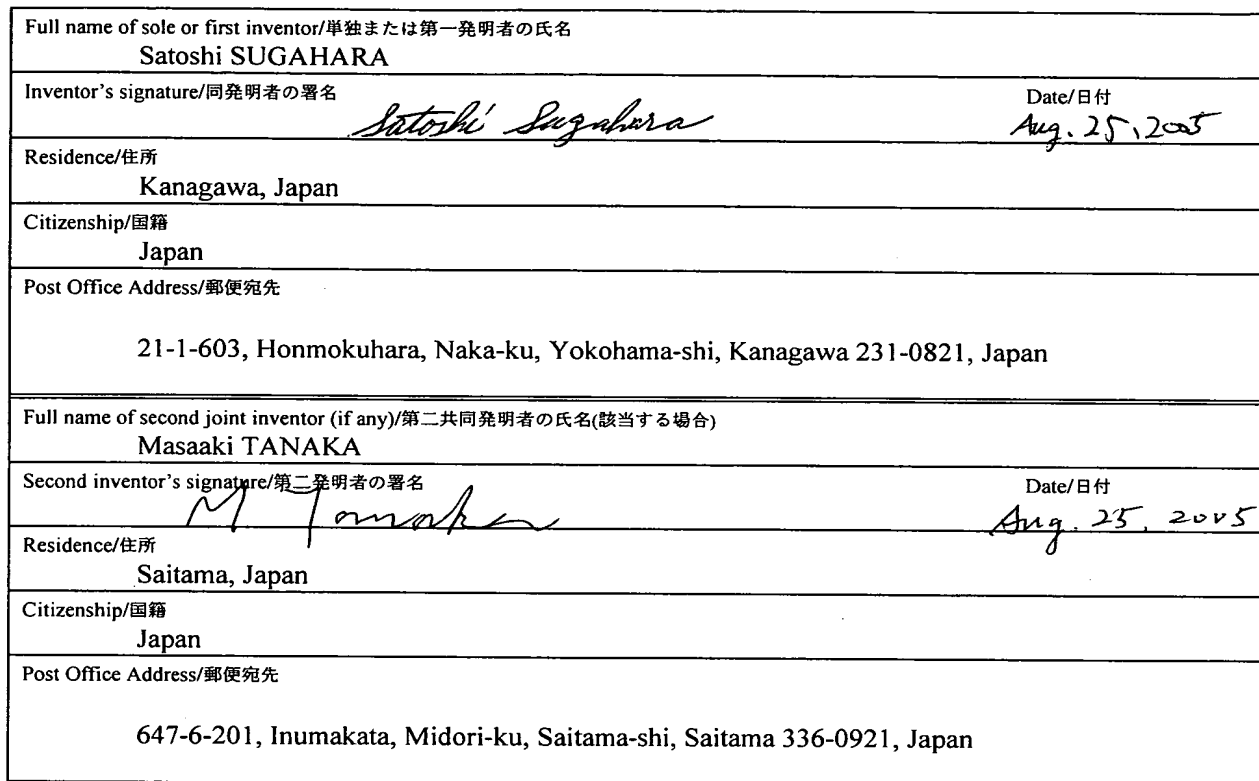 Full name of sole or first inventor/単独または第一発明者の氏名
Satoshi SUGAHARA
Inventor's signature/同発明者の署名 Date/日付
Satoshi Sugahara Aug. 25, 2005
Residence/住所
Kanagawa, Japan
Citizenship/国籍
Japan
Post Office Address/郵便宛先
21-1-603, Honmokuhara, Naka-ku, Yokohama-shi, Kanagawa 231-0821, Japan
Full name of second joint inventor (if any)/第二共同発明者の氏名(該当する場合)
Masaaki TANAKA
Second inventor's signature/第二発明者の署名 Date/日付
M Tanaka Aug. 25, 2005
Residence/住所
Saitama, Japan
Citizenship/国籍
Japan
Post Office Address/郵便宛先
647-6-201, Inumakata, Midori-ku, Saitama-shi, Saitama 336-0921, Japan